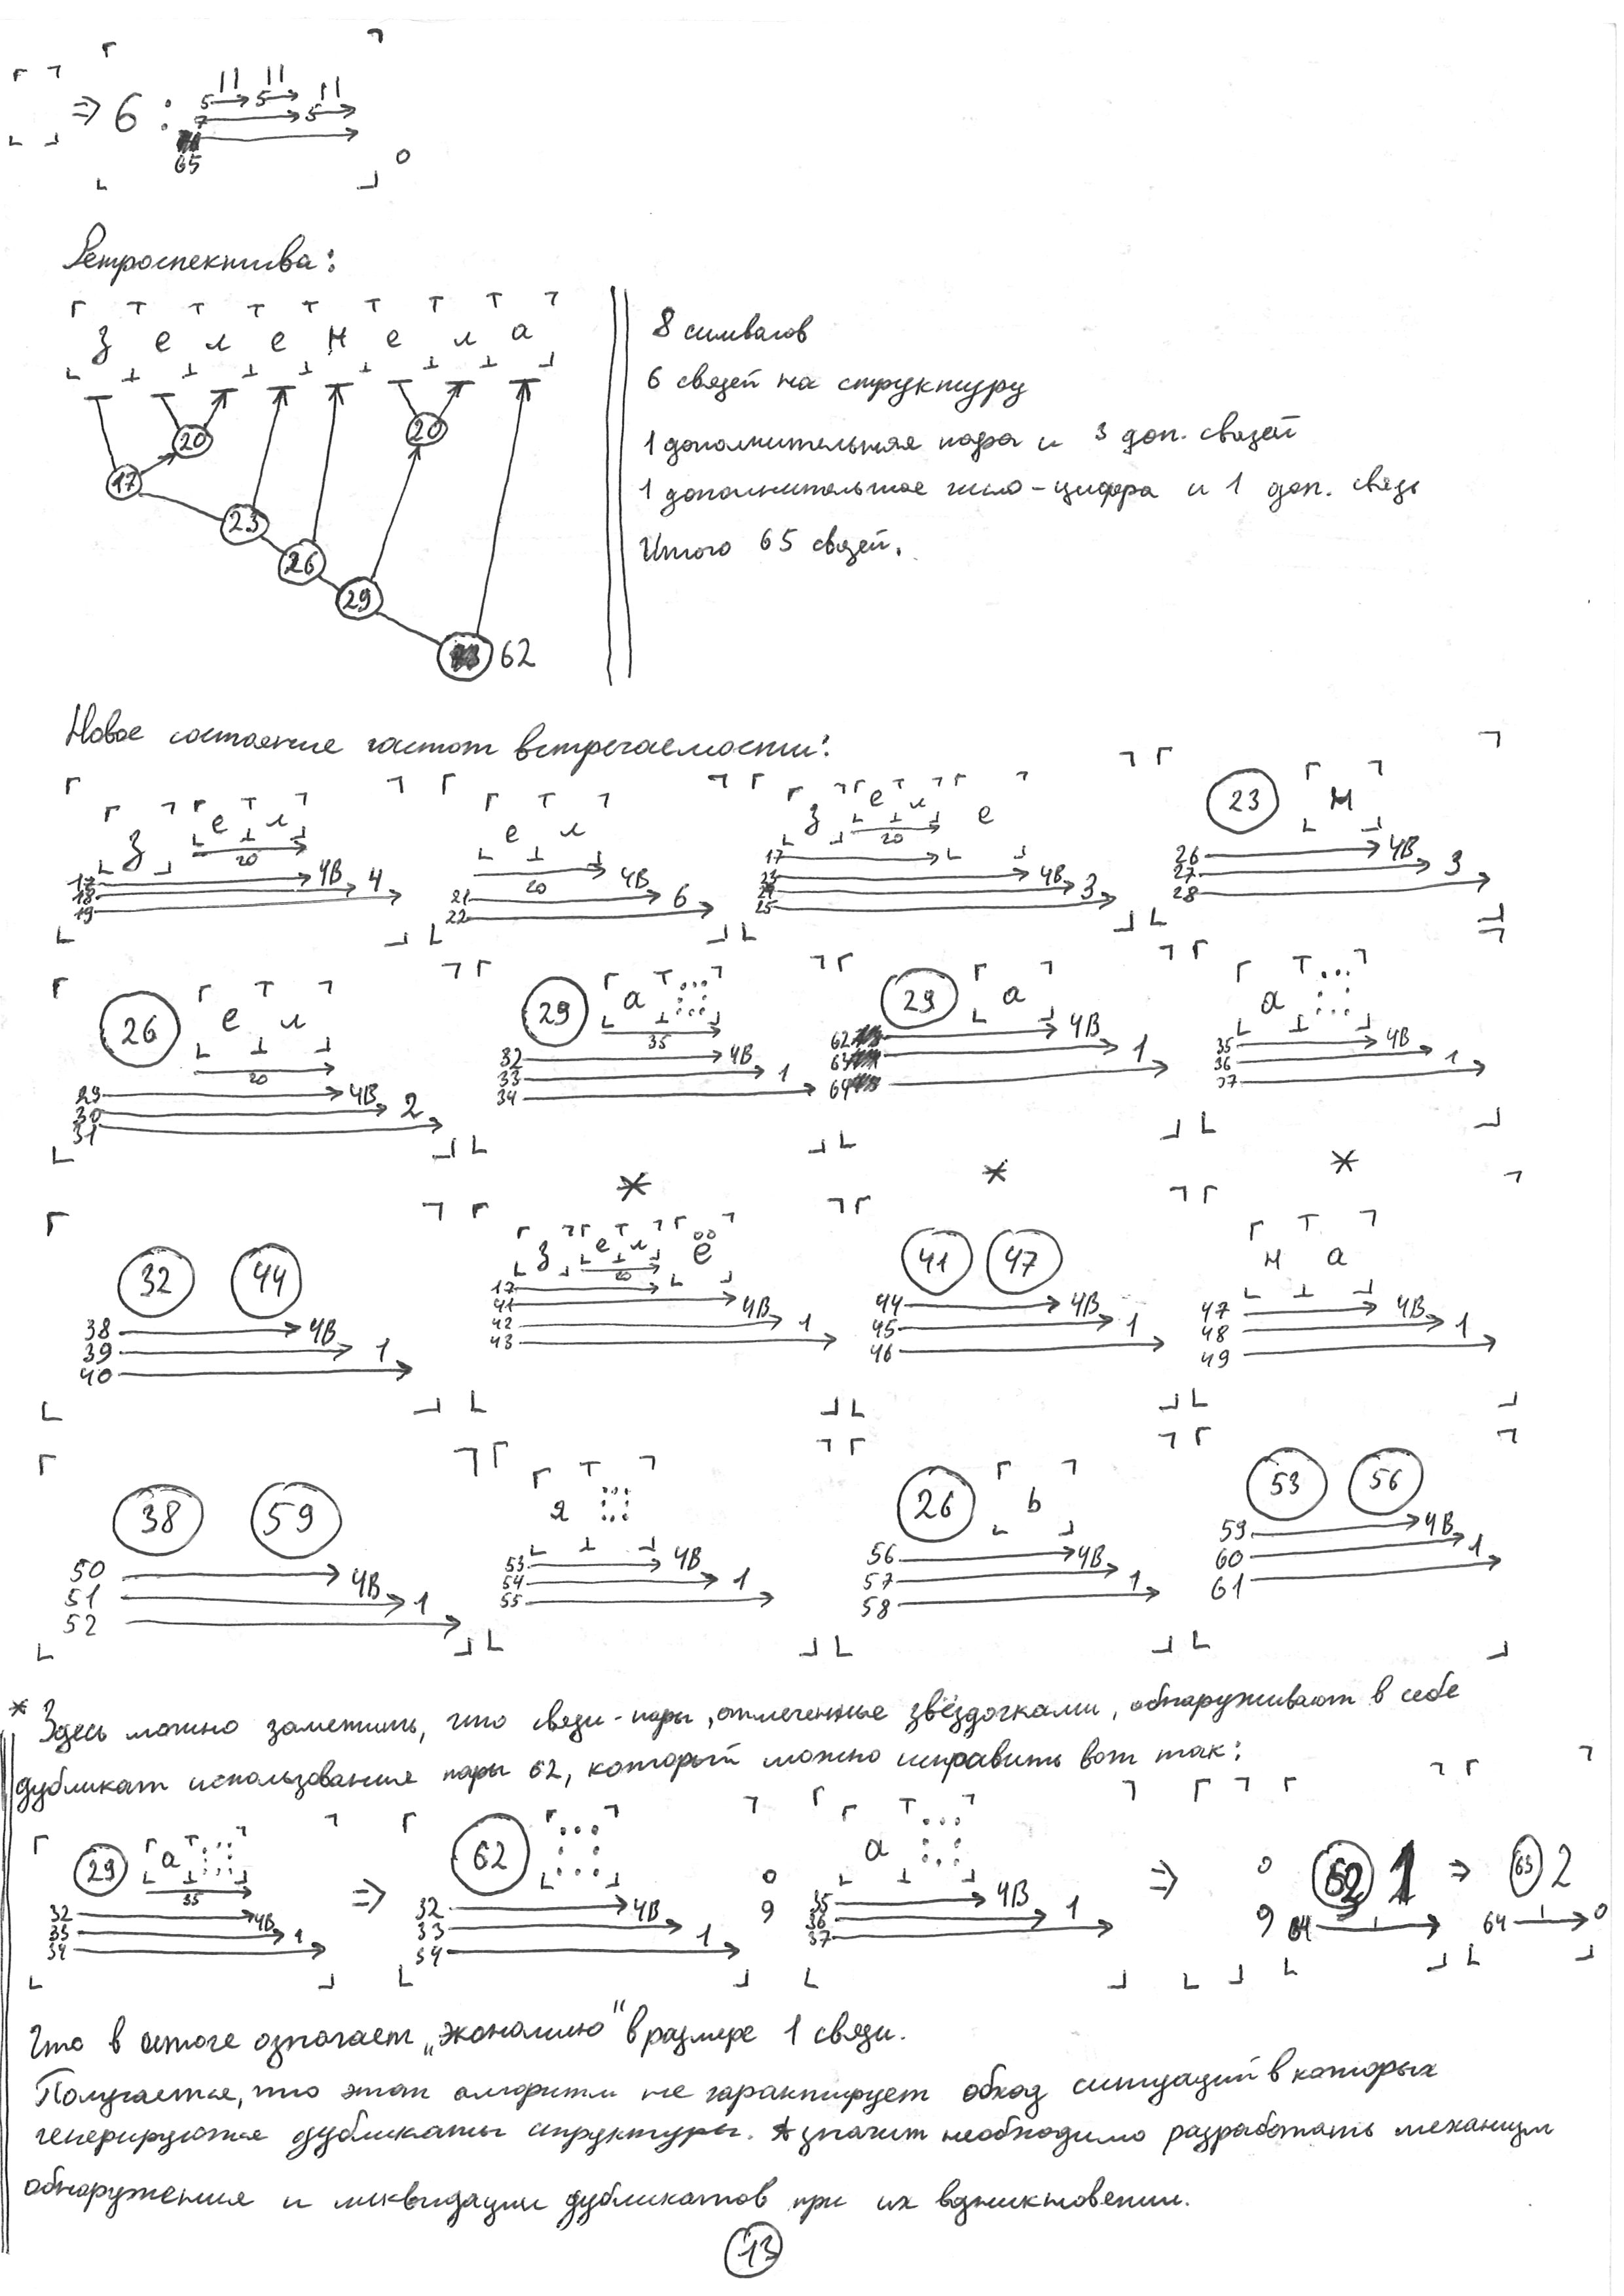 ⇒ 6 :
11 11 11
5 5 5
7
65
Ретроспектива:
З е л е н е л а
20 20
17
23
26
29
62
8 символов
6 связей на структуру
1 дополнительная пара и 3 доп. связей
1 дополнительное число-цифра и 1 доп. связь
Итого 65 связей.
Новое состояние частот встречаемости:
З е л 20 17 18 19 ЧВ 4
е л 20 21 22 ЧВ 6
З е л 20 е 17 23 24 25 ЧВ 3
23 н 26 27 28 ЧВ 3
26 е л 20 29 30 31 ЧВ 2
29 а 35 32 33 34 ЧВ 1
29 а 62 63 64 ЧВ 1
а 35 36 37 ЧВ 1
32 44 38 39 40 ЧВ 1
* З е л 20 ё 17 41 42 43 ЧВ 1
* 41 47 44 45 46 ЧВ 1
* н а 47 48 49 ЧВ 1
38 59 50 51 52 ЧВ 1
я 53 54 55 ЧВ 1
26 ь 56 57 58 ЧВ 1
53 56 59 60 61 ЧВ 1
* Здесь можно заметить, что связи-пары, отмеченные звёздочками, обнаруживают в себе
дубликат использования пары 62, который можно исправить вот так:
29 а 35 32 33 34 ЧВ 1 ⇒ 62 32 33 34 ЧВ 1
а 35 36 37 ЧВ 1 ⇒ 62 1 64 ⇒ 63 2 64
Что в итоге означает „экономию" в размере 1 связи.
Получается, что этот алгоритм не гарантирует обход ситуаций в которых
генерируются дубликаты структуры. А значит необходимо разработать механизм
обнаружения и ликвидации дубликатов при их возникновении.
13